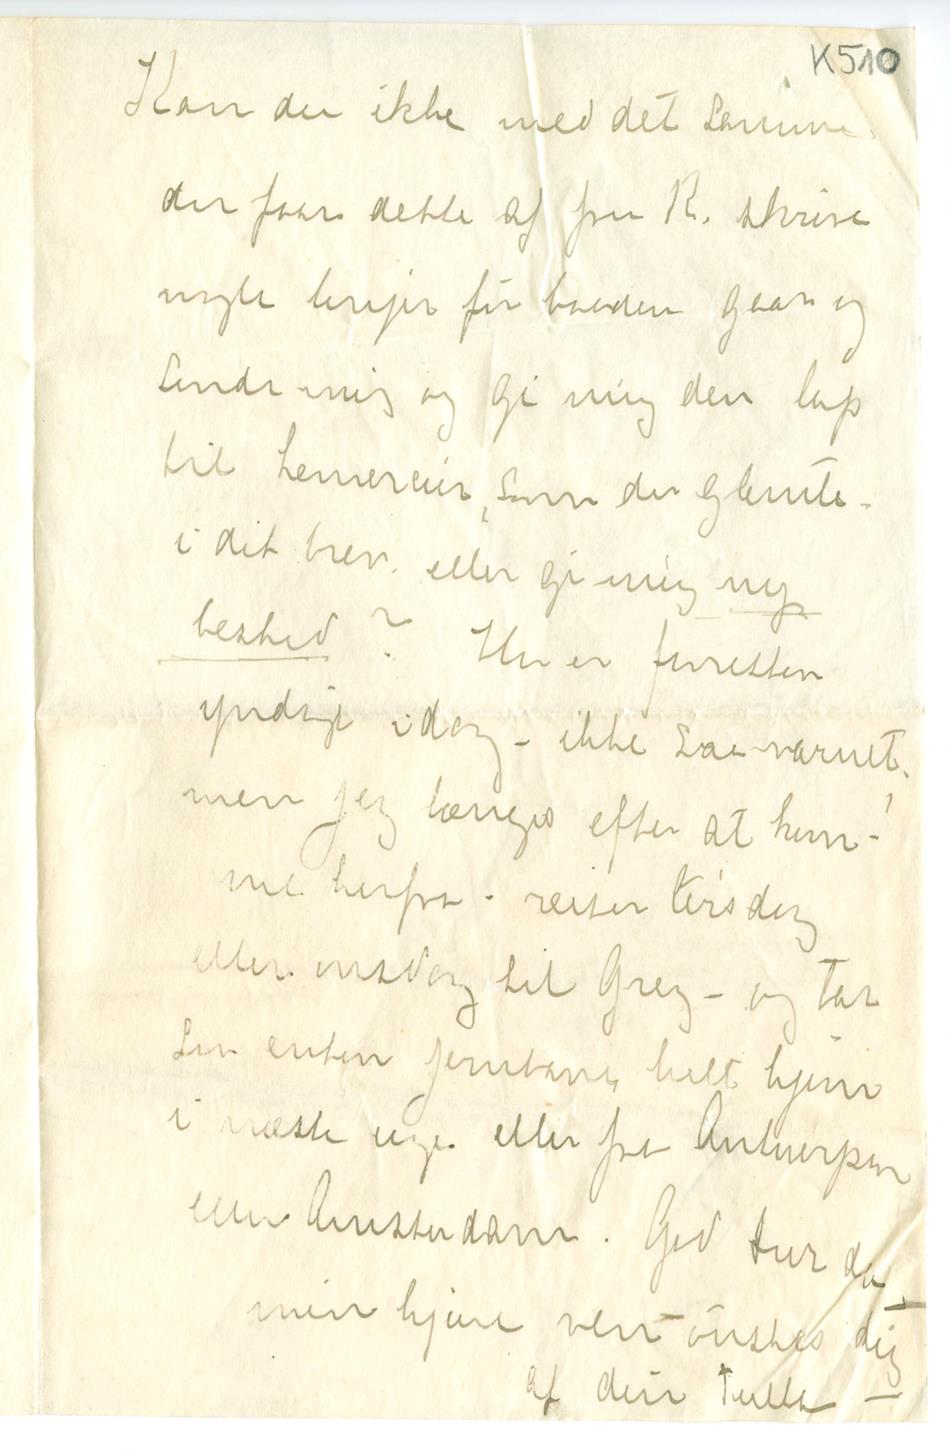 K510
Kan du ikke med det samme
du faar dette af fru R. skrive
nogle linjer før baaden gaar og
sende mig og gi mig den lap
til Lemercier, som du glemte
i dit brev. eller gi mig ny
besked? Her er forresten
yndigt idag – ikke saa varmt,
men jeg længes efter at kom-
me herfra – reiser tirsdag
eller onsdag til Grez – og tar
saa enten jernbane, helt hjem
i næste uge eller fra Antwerpen
eller Amsterdam. God tur da
min kjære ven ønskes dig
af din Tulla –